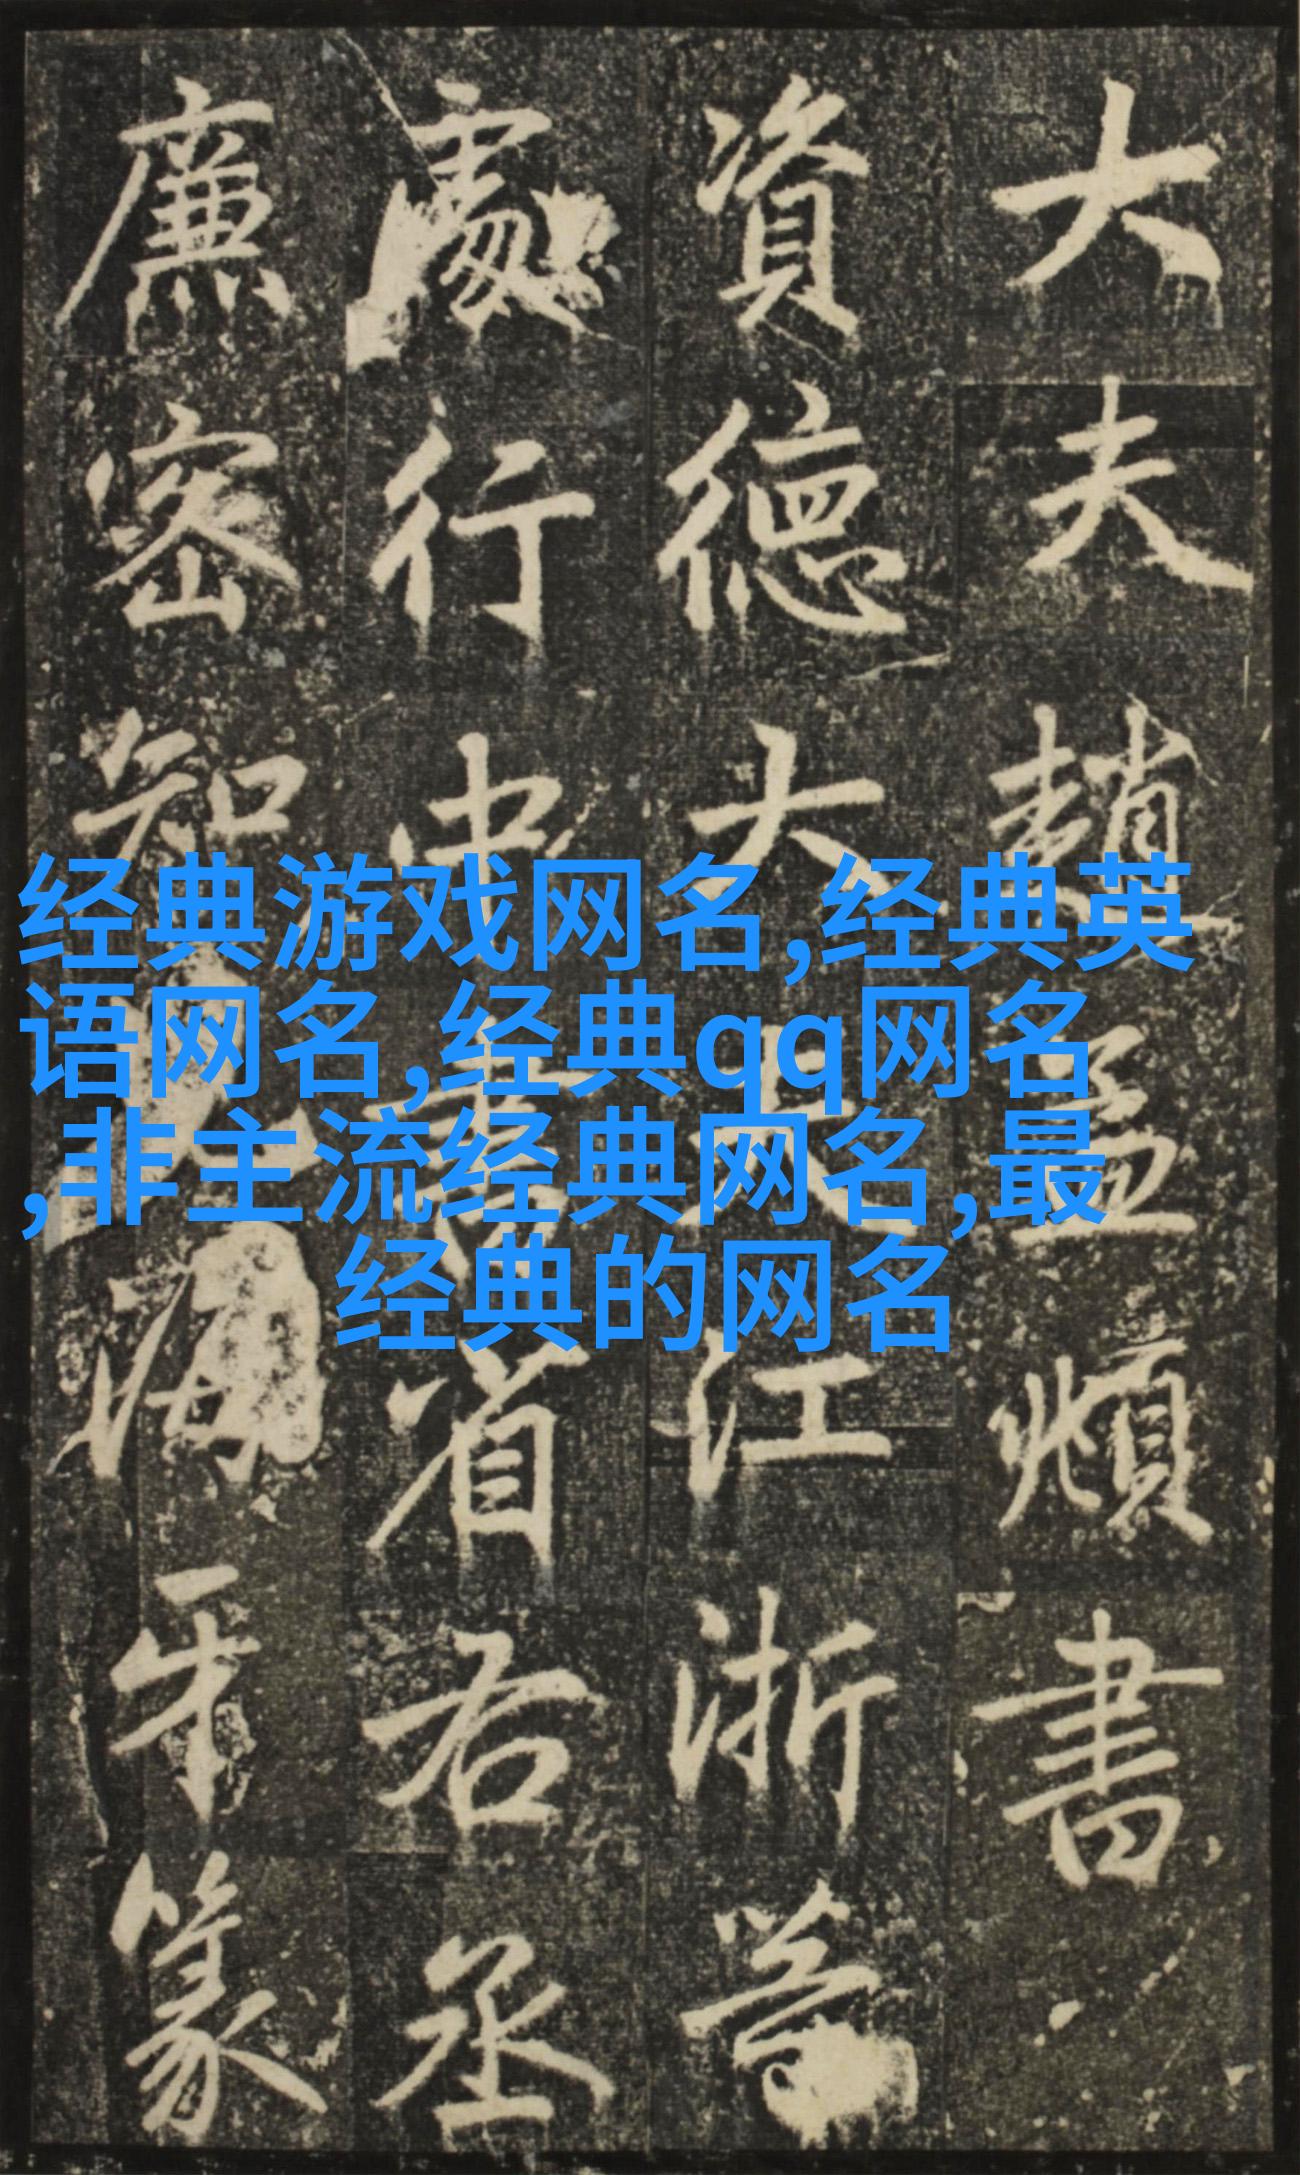 经典游戏网名,经典英
语网名,经典qq网名
,非主流经典网名,最
经典的网名
大夫趙孟頫書
資德大夫江浙等
處行中書省右丞
廉密知海牙篆